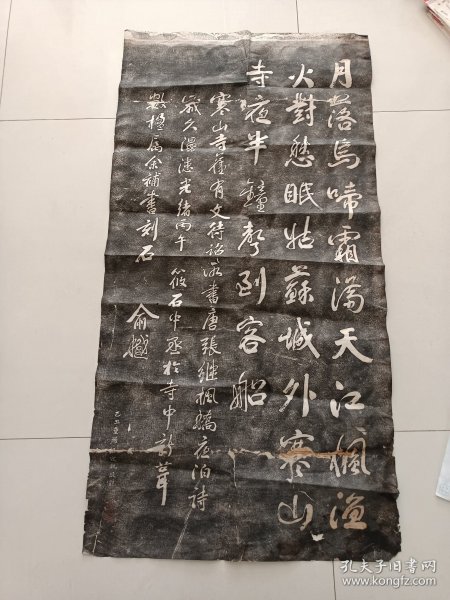 月落烏啼霜滿天江楓漁
火對愁眠姑蘇城外寒山
寺夜半鐘聲到客船
寒山寺舊有文待詔所書唐張繼楓橋夜泊詩
歲久漫漶光緒丙午筱石中丞於寺中新葺
數楹屬余補書刻石
俞樾
孔夫子旧书网
www.kongfz.com